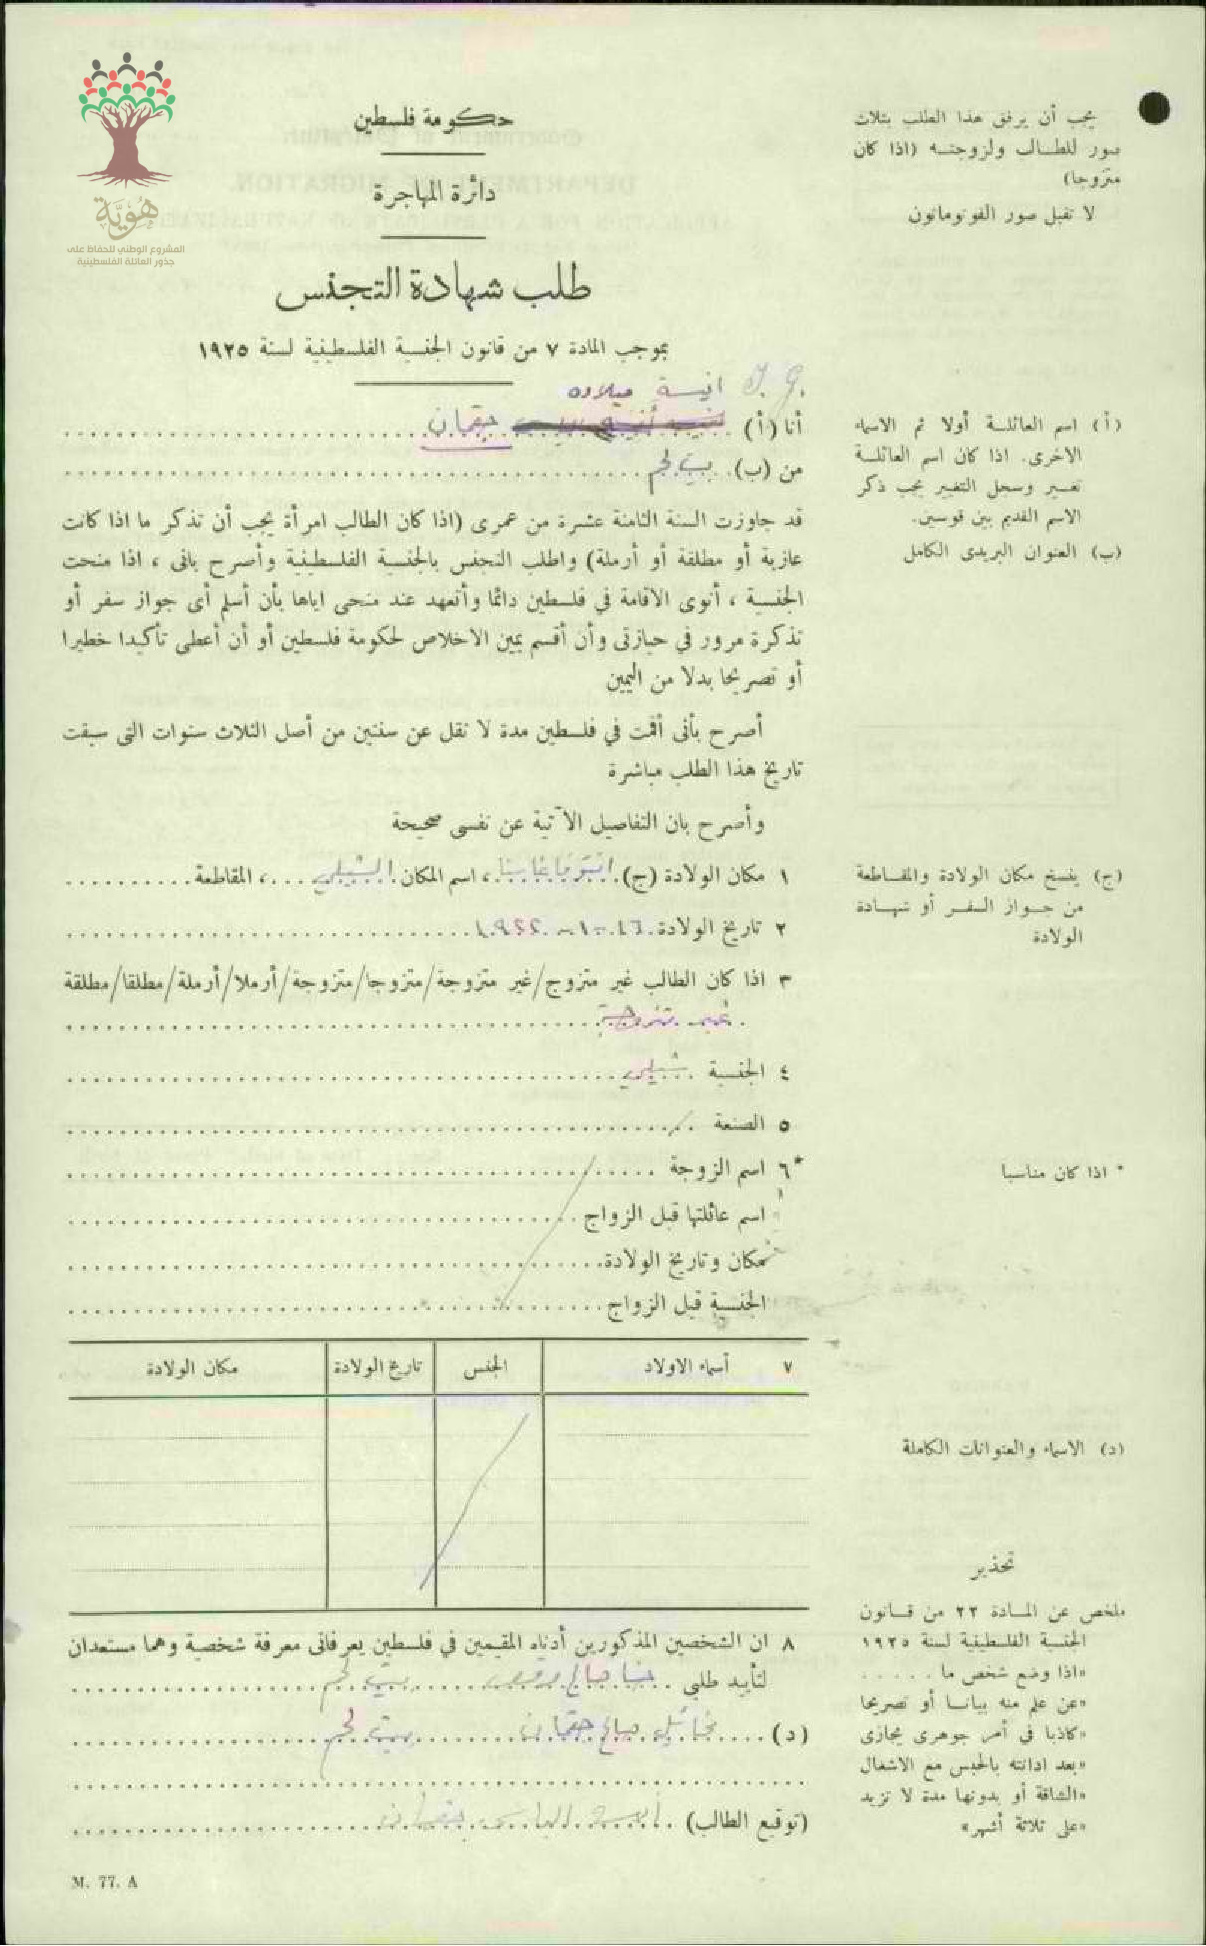 هُويَّة
المشروع الوطني للحفاظ على
جذور العائلة الفلسطينية
حكومة فلسطين
دائرة المهاجرة
طلب شهادة التجنس
بموجب المادة ٧ من قانون الجنسية الفلسطينية لسنة ١٩٢٥
يجب أن يرفق هذا الطلب بثلاث
صور للطالب ولزوجته (اذا كان
متزوجا)
لا تقبل صور الفوتوماتون
انيسة ميلاده
أنا (أ) جقمان
من (ب) بيت لحم
(أ) اسم العائلة أولا ثم الاسماء
الاخرى. اذا كان اسم العائلة
تغير وسجل التغيير يجب ذكر
الاسم القديم بين قوسين.
(ب) العنوان البريدى الكامل
قد جاوزت السنة الثامنة عشرة من عمرى (اذا كان الطالب امرأة يجب أن تذكر ما اذا كانت
عازبة أو مطلقة أو أرملة) واطلب التجنس بالجنسية الفلسطينية وأصرح بانى ، اذا منحت
الجنسية ، أنوى الاقامة في فلسطين دائما وأتعهد عند منحى اياها بأن أسلم أى جواز سفر أو
تذكرة مرور في حيازتى وأن أقسم يمين الاخلاص لحكومة فلسطين أو أن أعطى تأكيدا خطيرا
أو تصريحا بدلا من اليمين
أصرح بأنى أقمت في فلسطين مدة لا تقل عن سنتين من أصل الثلاث سنوات التى سبقت
تاريخ هذا الطلب مباشرة
وأصرح بان التفاصيل الآتية عن نفسى صحيحة
١ مكان الولادة (ج) انتوفاغاستا ، اسم المكان الشيلي ، المقاطعة
٢ تاريخ الولادة ١٦-١-١٩٢٢
٣ اذا كان الطالب غير متزوج/غير متزوجة/متزوجا/متزوجة/أرملا/أرملة/مطلقا/مطلقة
غير متزوجة
٤ الجنسية شيلي
٥ الصنعة
*٦ اسم الزوجة
اسم عائلتها قبل الزواج
مكان وتاريخ الولادة
الجنسية قبل الزواج
(ج) ينسخ مكان الولادة والمقاطعة
من جواز السفر أو شهادة
الولادة
* اذا كان مناسبا
٧ أسماء الاولاد الجنس تاريخ الولادة مكان الولادة
(د) الاسماء والعنوانات الكاملة
٨ ان الشخصين المذكورين أدناه المقيمين في فلسطين يعرفانى معرفة شخصية وهما مستعدان
لتأييد طلبي حنا صالح بيت لحم
(د) مخائيل صالح جقمان بيت لحم
(توقيع الطالب) جقمان
تحذير
ملخص عن المادة ٢٢ من قانون
الجنسية الفلسطينية لسنة ١٩٢٥
«اذا وضع شخص ما
«عن علم منه بيانا أو تصريحا
«كاذبا في أمر جوهرى يجازى
«بعد ادانته بالحبس مع الاشغال
«الشاقة أو بدونها مدة لا تزيد
«على ثلاثة أشهر»
M. 77. A